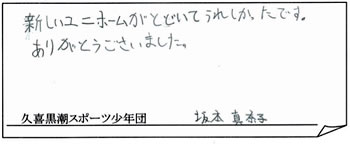 新しいユニホームがとどいてうれしかったです。
ありがとうございました。
久喜黒潮スポーツ少年団 坂本 真